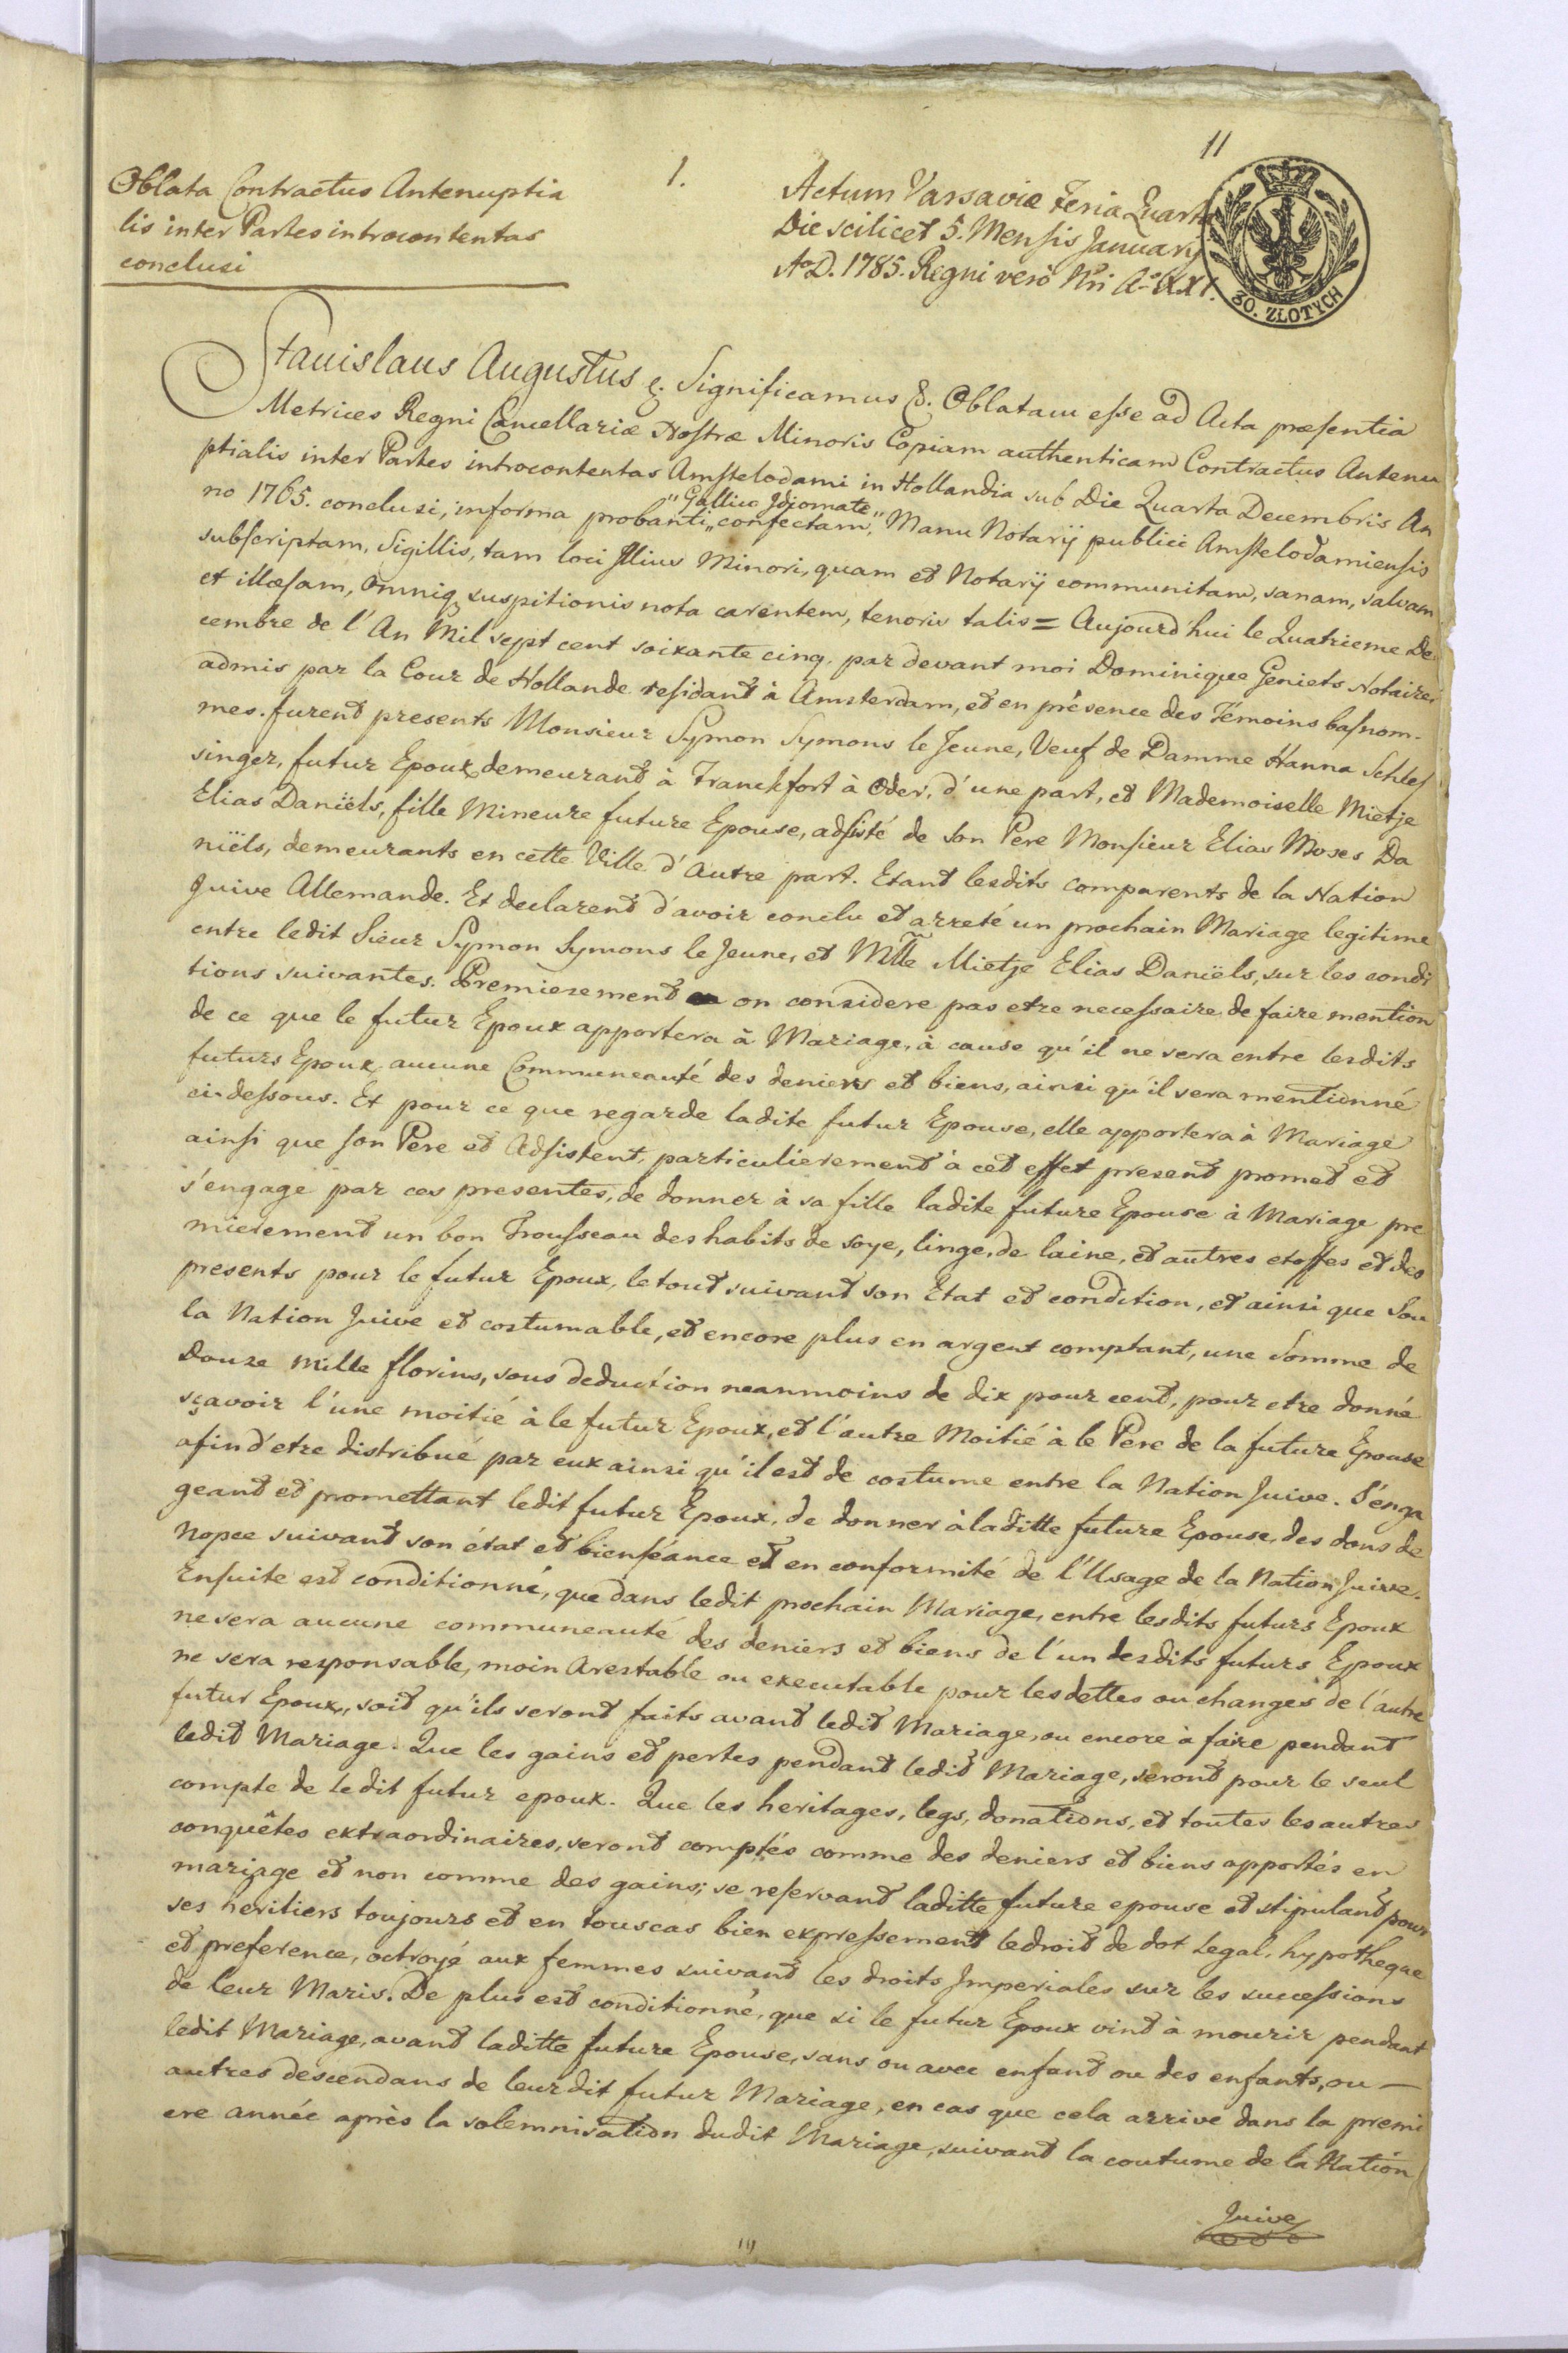 11
1.
Oblata Contractus Antenuptia
lis inter Partes introcontentas
conclusi
Actum Varsaviæ Feria Quarta
Die scilicet 5. Mensis January
Aº D. 1785. Regni verò Nri Aº XXI.
30. ZLOTYCH
Stanislaus Augustus &. Significamus &. Oblatam esse ad Acta præsentia
Metrices Regni Cancellariæ Nostræ Minoris Copiam authenticam Contractus Antenu
ptialis inter Partes introcontentas Amstelodami in Hollandia sub Die Quarta Decembris An
no 1765. conclusi, in forma probanti, "Gallico Idiomate" confectam, Manu Notarÿ publici Amstelodamiensis
subscriptam, Sigillis, tam loci Illius Minori, quam et Notarÿ communitam, sanam, salvam
et illæsam, omniq suspitionis nota carentem, tenoris talis = Aujourd'hui le Quatrieme De
cembre de l'An Mil sept cent soixante cinq, par devant moi Dominique Geniets Notaire,
admis par la Cour de Hollande residant à Amsterdam, et en présence des Témoins basnom-
mes. furent presents Monsieur Symon Symons le Jeune, Veuf de Damme Hanna Schles
singer, futur Epoux demeurant à Franckfort à Oder, d'une part, et Mademoiselle Mietje
Elias Daniëls, fille Mineure future Epouse, adsisté de Son Pere Monsieur Elias Moses Da
niëls, demeurants en cette Ville d'autre part. Etant lesdits comparents de la Nation
Juive Allemande. Et declarent d'avoir conclu et arreté un prochain Mariage legitime
entre ledit Sieur Symon Symons le Jeune, et Mlle Mietje Elias Daniëls, sur les condi
tions suivantes. Premierement on considere pas etre necessaire de faire mention
de ce que le futur Epoux apportera à Mariage, à cause qu'il ne sera entre lesdits
futurs Epoux aucune Communeauté des deniers et biens, ainsi qu'il sera mentionné
ci-dessous. Et pour ce que regarde ladite futur Epouse, elle apportera à Mariage
ainsi que son Pere et Adsistent, particulierement à cet effet present promet et
s'engage par ces presentes, de donner à sa fille ladite future Epouse à Mariage pre
mierement un bon Trousseau des habits de soye, linge, de laine, et autres etoffes et des
presents pour le futur Epoux, le tout suivant son Etat et condition, et ainsi que Sou
la Nation Juive et costumable, et encore plus en argent comptant, une Somme de
Douze mille florins, sous deduction neanmoins de dix pour cent, pour etre donné
sçavoir l'une moitié à le futur Epoux, et l'autre Moitié à le Pere de la future Epouse
afin d'etre distribué par eux ainsi qu'il est de costume entre la Nation Juive. S'enga
geant et promettant ledit futur Epoux, de donner à laditte future Epouse, des dons de
Nopce suivant son état et bienséance et en conformité de l'Usage de la Nation Juive.
Ensuite est conditionné, que dans ledit prochain Mariage, entre lesdits futurs Epoux
ne sera aucune communeauté des deniers et biens de l'un desdits futurs Epoux
ne sera responsable, moin arestable ou executable pour les dettes ou changes de l'autre
futur Epoux, soit qu'ils seront faits avant ledit Mariage, ou encore à faire pendant
ledit Mariage. Que les gains et pertes pendant ledit Mariage, seront pour le seul
compte de ledit futur epoux. Que les heritages, legs, donations, et toutes les autres
conquêtes extraordinaires, seront comptés comme des deniers et biens apportés en
mariage et non comme des gains; se reservant laditte future epouse et stipulant pour
ses heritiers toujours et en tous cas bien expressement le droit de dot Legal, hypotheque
et preference, octroyé aux femmes suivant les droits Imperiales sur les successions
de leur Maris. De plus est conditionné, que si le futur Epoux vint à mourir pendant
ledit Mariage, avant laditte future Epouse, sans ou avec enfant ou des enfants, ou —
autres descendans de leur dit futur Mariage, en cas que cela arrive dans la premi
ere année après la solemnisation dudit Mariage, suivant la coutume de la Nation
Juive